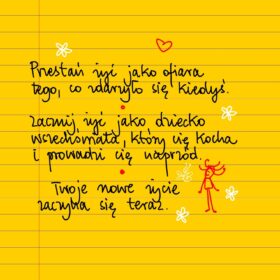 Przestań żyć jako ofiara
tego, co zdarzyło się kiedyś.
zacznij żyć jako dziecko
wszechświata, który cię kocha
i prowadzi cię naprzód.
Twoje nowe życie
zaczyna się teraz.